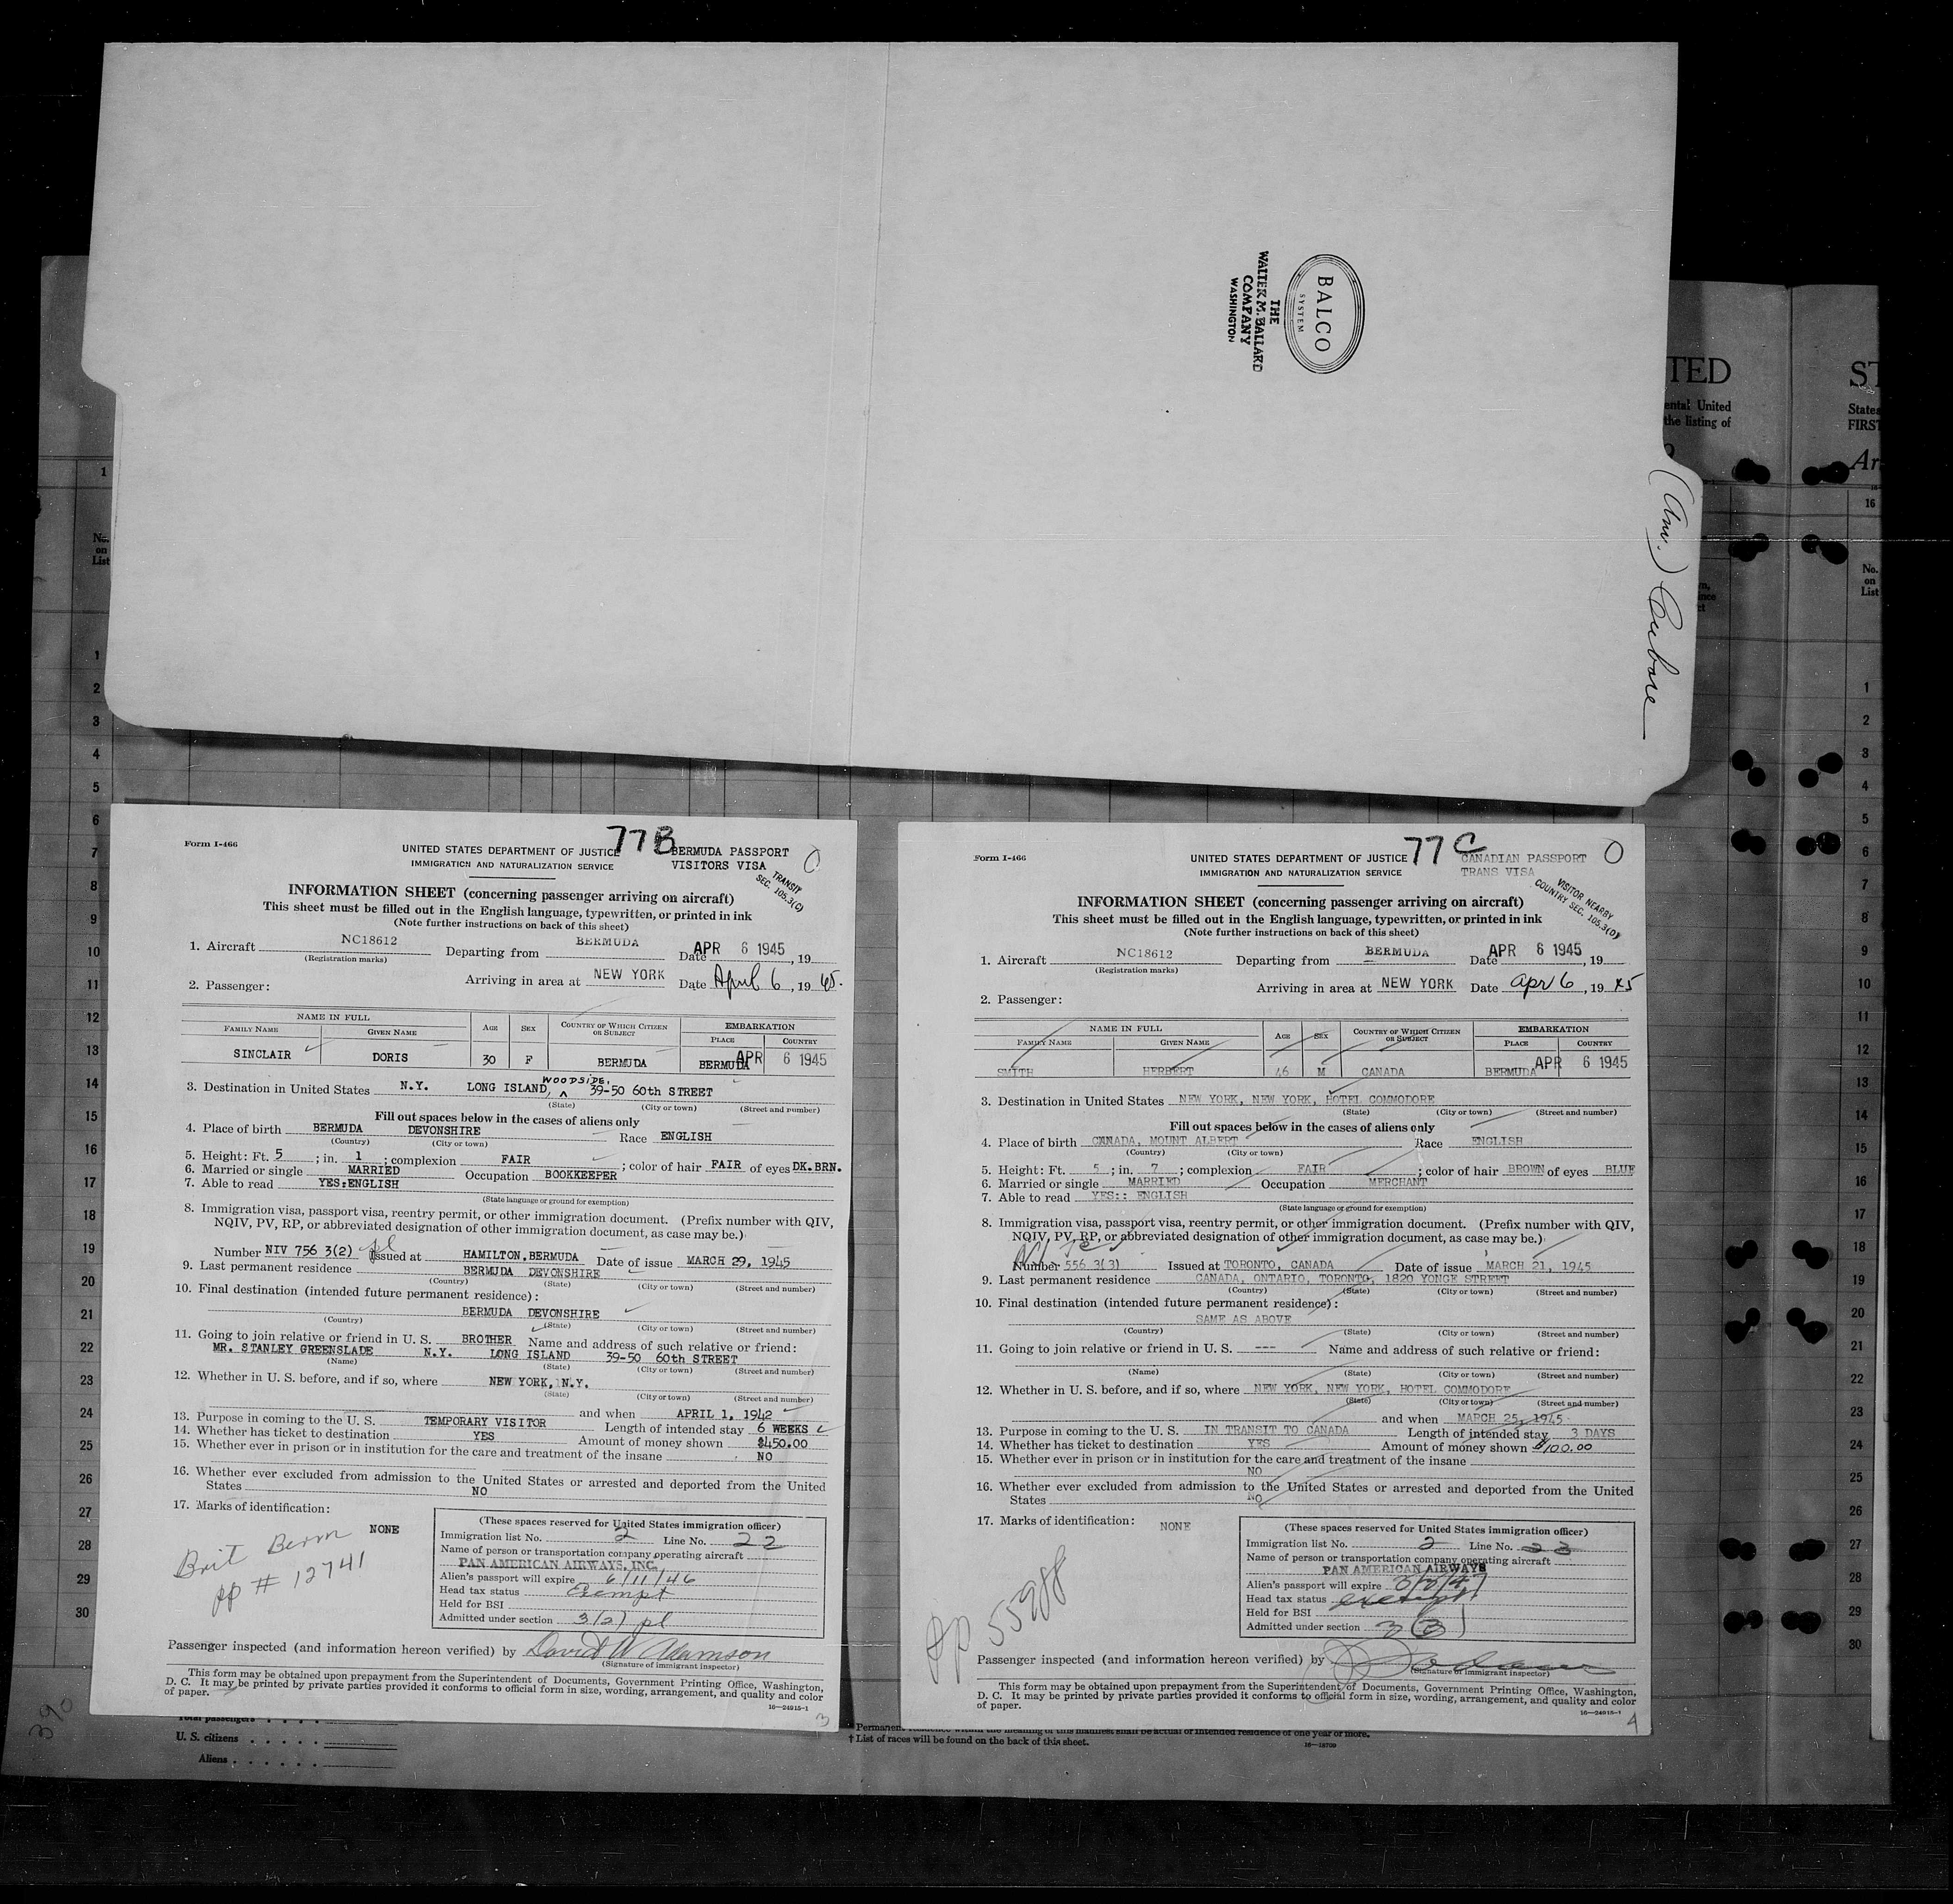 BALCO
SYSTEM
THE
WALTER M. BALLARD
COMPANY
WASHINGTON
TED
ental United
the listing of
ST
States
FIRST
No.
on
List
77B
Form I-466
UNITED STATES DEPARTMENT OF JUSTICE
IMMIGRATION AND NATURALIZATION SERVICE
BERMUDA PASSPORT
VISITORS VISA
TRANSIT
SEC. 105.3(C)
INFORMATION SHEET (concerning passenger arriving on aircraft)
This sheet must be filled out in the English language, typewritten, or printed in ink
(Note further instructions on back of this sheet)
1. Aircraft NC18612 Departing from BERMUDA Date APR 6 1945, 19
(Registration marks)
Arriving in area at NEW YORK Date April 6, 19 45.
2. Passenger:
NAME IN FULL AGE SEX COUNTRY OF WHICH CITIZEN OR SUBJECT EMBARKATION
FAMILY NAME GIVEN NAME PLACE COUNTRY
SINCLAIR DORIS 30 F BERMUDA BERMUDA APR 6 1945
WOODSIDE,
3. Destination in United States N.Y. LONG ISLAND, 39-50 60th STREET
(State) (City or town) (Street and number)
Fill out spaces below in the cases of aliens only
4. Place of birth BERMUDA DEVONSHIRE Race ENGLISH
(Country) (City or town)
5. Height: Ft. 5; in. 1; complexion FAIR; color of hair FAIR of eyes DK.BRN.
6. Married or single MARRIED Occupation BOOKKEEPER
7. Able to read YES:ENGLISH
(State language or ground for exemption)
8. Immigration visa, passport visa, reentry permit, or other immigration document. (Prefix number with QIV,
NQIV, PV, RP, or abbreviated designation of other immigration document, as case may be.)
Number NIV 756 3(2) Issued at HAMILTON,BERMUDA Date of issue MARCH 29, 1945
9. Last permanent residence BERMUDA DEVONSHIRE
(Country) (State) (City or town) (Street and number)
10. Final destination (intended future permanent residence):
BERMUDA DEVONSHIRE
(Country) (State) (City or town) (Street and number)
11. Going to join relative or friend in U. S. BROTHER Name and address of such relative or friend:
MR. STANLEY GREENSLADE N.Y. LONG ISLAND 39-50 60th STREET
(Name) (State) (City or town) (Street and number)
12. Whether in U. S. before, and if so, where NEW YORK, N.Y.
(State) (City or town) (Street and number)
and when APRIL 1, 1942
13. Purpose in coming to the U. S. TEMPORARY VISITOR Length of intended stay 6 WEEKS
14. Whether has ticket to destination YES Amount of money shown $450.00
15. Whether ever in prison or in institution for the care and treatment of the insane NO
16. Whether ever excluded from admission to the United States or arrested and deported from the United
States NO
17. Marks of identification: NONE
Brit Berm
pp # 12741
(These spaces reserved for United States immigration officer)
Immigration list No. 2 Line No. 22
Name of person or transportation company operating aircraft
PAN AMERICAN AIRWAYS, INC.
Alien's passport will expire 6/11/46
Head tax status Exempt
Held for BSI
Admitted under section 3(2) pl
Passenger inspected (and information hereon verified) by David W Adamson
(Signature of immigrant inspector)
This form may be obtained upon prepayment from the Superintendent of Documents, Government Printing Office, Washington,
D. C. It may be printed by private parties provided it conforms to official form in size, wording, arrangement, and quality and color
of paper.
16—24915-1
3
77C
Form I-466
UNITED STATES DEPARTMENT OF JUSTICE
IMMIGRATION AND NATURALIZATION SERVICE
CANADIAN PASSPORT
TRANS VISA
VISITOR NEARBY
COUNTRY SEC. 105.3(D)
INFORMATION SHEET (concerning passenger arriving on aircraft)
This sheet must be filled out in the English language, typewritten, or printed in ink
(Note further instructions on back of this sheet)
1. Aircraft NC18612 Departing from BERMUDA Date APR 6 1945, 19
(Registration marks)
Arriving in area at NEW YORK Date Apr 6, 19 45
2. Passenger:
NAME IN FULL AGE SEX COUNTRY OF WHICH CITIZEN OR SUBJECT EMBARKATION
FAMILY NAME GIVEN NAME PLACE COUNTRY
SMITH HERBERT 46 M CANADA BERMUDA APR 6 1945
3. Destination in United States NEW YORK, NEW YORK, HOTEL COMMODORE
(State) (City or town) (Street and number)
Fill out spaces below in the cases of aliens only
4. Place of birth CANADA, MOUNT ALBERT Race ENGLISH
(Country) (City or town)
5. Height: Ft. 5; in. 7; complexion FAIR; color of hair BROWN of eyes BLUE
6. Married or single MARRIED Occupation MERCHANT
7. Able to read YES:: ENGLISH
(State language or ground for exemption)
8. Immigration visa, passport visa, reentry permit, or other immigration document. (Prefix number with QIV,
NQIV, PV, RP, or abbreviated designation of other immigration document, as case may be.)
Number 556 3(3) Issued at TORONTO, CANADA Date of issue MARCH 21, 1945
9. Last permanent residence CANADA, ONTARIO, TORONTO, 1820 YONGE STREET
(Country) (State) (City or town) (Street and number)
10. Final destination (intended future permanent residence):
SAME AS ABOVE
(Country) (State) (City or town) (Street and number)
11. Going to join relative or friend in U. S. --- Name and address of such relative or friend:
(Name) (State) (City or town) (Street and number)
12. Whether in U. S. before, and if so, where NEW YORK, NEW YORK, HOTEL COMMODORE
(State) (City or town) (Street and number)
and when MARCH 25, 1945
13. Purpose in coming to the U. S. IN TRANSIT TO CANADA Length of intended stay 3 DAYS
14. Whether has ticket to destination YES Amount of money shown $100.00
15. Whether ever in prison or in institution for the care and treatment of the insane
NO
16. Whether ever excluded from admission to the United States or arrested and deported from the United
States NO
17. Marks of identification: NONE
pp 55988
(These spaces reserved for United States immigration officer)
Immigration list No. 2 Line No. 23
Name of person or transportation company operating aircraft
PAN AMERICAN AIRWAYS
Alien's passport will expire
Head tax status exempt
Held for BSI
Admitted under section 3(3)
Passenger inspected (and information hereon verified) by
(Signature of immigrant inspector)
This form may be obtained upon prepayment from the Superintendent of Documents, Government Printing Office, Washington,
D. C. It may be printed by private parties provided it conforms to official form in size, wording, arrangement, and quality and color
of paper.
16—24915-1
4
390
Total passengers
U. S. citizens
Aliens
† List of races will be found on the back of this sheet.